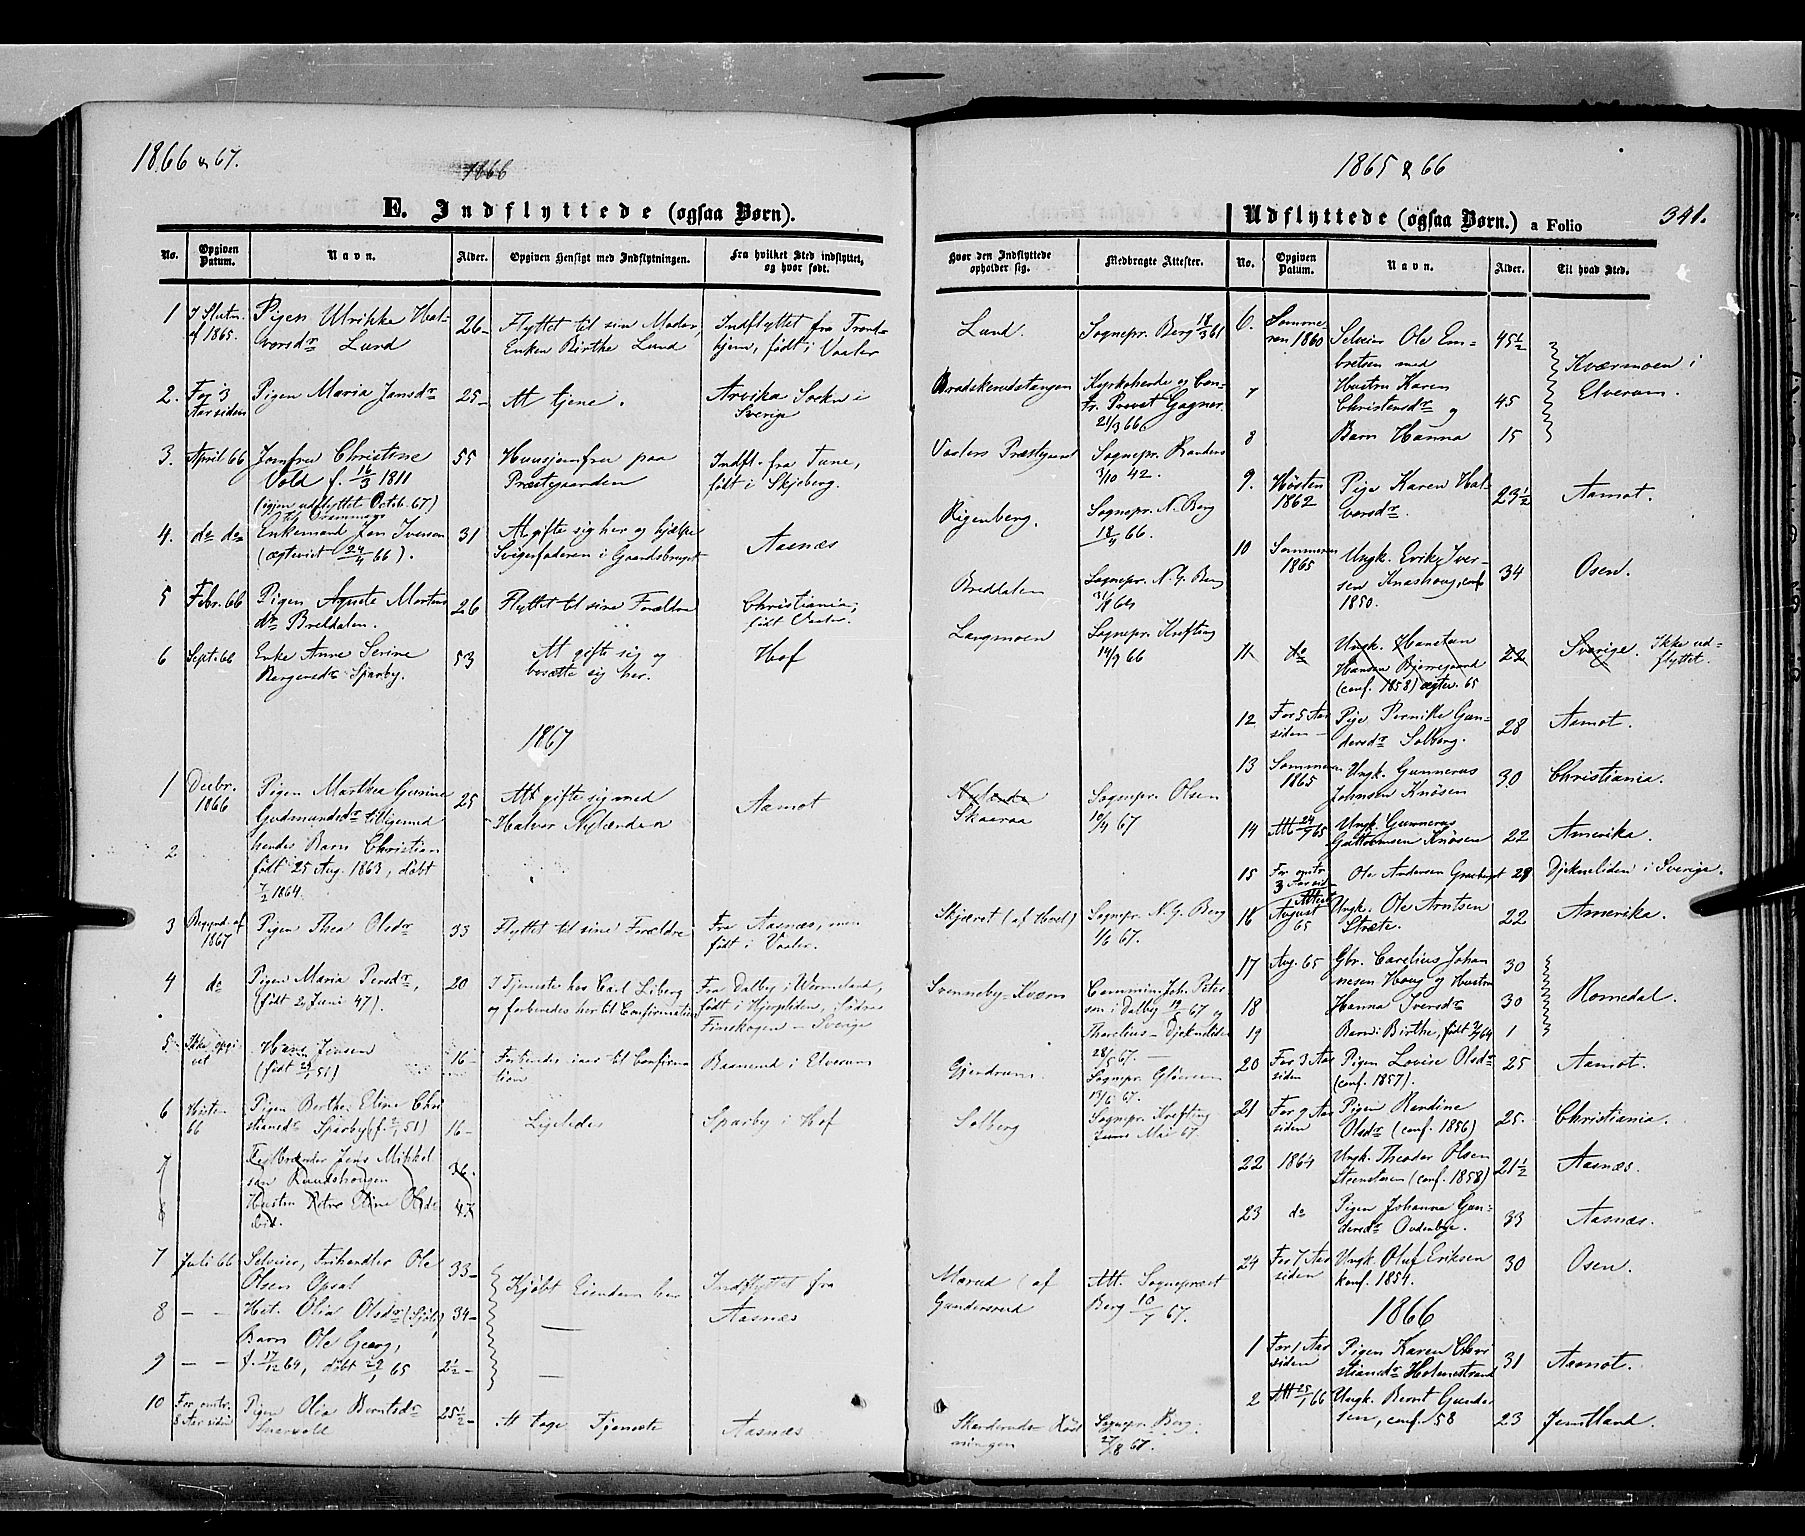 1866 & 67.
1866
E. Indflyttede (ogsaa Børn).
No. Opgiven Datum. Navn. Alder. Opgiven Hensigt med Indflytningen. Fra hvilket Sted indflyttet, og hvor født.
1 I Slutn. Pigen Ulrikke Hal- 26- Flyttet til sin Moder, Indflyttet fra Trond-
af 1865. vorsdr Lund Enken Birthe Lund hjem, født i Vaaler
2. For 3 Pigen Maria Jansdr 25- At tjene. Arvika Sockn i
Aar siden Sverige
3. April 66 Jomfru Christine 55 Huusjomfru paa Indfl. fra Tune,
Vold f. 16/3 1811 Præstegaarden født i Skjeberg.
(igjen udflyttet Octob. 67)
4. do do Enkemand Jon Iversen 31 At gifte sig her og hjælpe Aasnæs
(ægteviet 24/4 66). Svigerfaderen i Gaardsbruget
5 Febr. 66 Pigen Agnete Mortens 26 Flyttet til sine Forældre Christiania,
dr Breddalen. født Vaaler.
6 Sept. 66 Enke Anne Serine 53 At gifte sig og Hof
Bergersdr Sparby. bosætte sig her.
1867
1 Decbr. Pigen Marthea Gurine 25 At gifte sig med Aamot
1866 Gudmundsdr tilligemed Halvor Nylænden
2 hendes Barn Christian
født 25 Aug. 1863, døbt
7/2 1864.
3 Begynd. af Pigen Thea Olsdr 33 Flyttet til sine Forældre Fra Aasnæs, men
1867 født i Vaaler.
4 do Pigen Maria Persdr, 20 I Tjeneste hos Carl Liberg Fra Dalby i Wermeland,
(født 2 Juni 47). og forberedes her til Confirmation født i Hjerpliden, Södra
Finskogen - Sverige
5 Ikke opgi- Hans Jensen 16- Forberedes iaar til Confirma Baanerud i Elverum
vet (født 51) tion
6 Høsten Pigen Berthe Eline Chri Ligeledes Sparby i Hof
66 stiansdr Sparby (f. 51) 16-
7 Jens Mikkel 36.
sen Rundshougen
8 Hustru Petra Eline Olsdr 47
7 Juli 66 Selveier, Frihandler Ole 33- Kjøbt Eiendom her Indflyttet fra
Olsen Opsal Aasnæs
8 - - Hst. Olia Olsdr 34-
Barn Ole Georg,
9 - - f. 17/12 64, døbt 65 2½-
10 For omtr. Pigen Olia Berntsdr 25½- At tage Tjeneste Aasnæs
8 Aar siden
1865 & 66
Udflyttede (ogsaa Børn.) a Folio 341.
Hvor den Indflyttede opholder sig. Medbragte Attester. No. Opgiven Datum. Navn. Alder. Til hvad Sted.
Lund. Sognepr. Berg 18/3 61
Bradskerudstangen Kyrkoherde og Con-
tr. Provst Gagner.
21/3 66
Vaalers Præstegaard Sognepr. Randers
3/10 42.
Rigenberg. Sognepr. N. Berg
18/4 66.
Breddalen Sognepr. N. G. Berg
Langmoen Sognepr. Krefting
14/9 66
Nylænden Sognepr. Olsen
Skaaraa 10/4 67
Skjæret (af Hvel) Sognepr. N. G. Berg
1/6 67.
Svenneby-Kværn Comminist. Joh. Peters
son i Dalby 67 og
Thorelius - Djekneliden
28/5 67. -
Gjendrum. Sognepr. Gløersen
13/6 67.
Solberg Sognepr. Krefting
Mai 67.
Marud (af Att. Sognepræst
Gundersrud Berg 10/7 67.
Skarderuds- Sognepr. Berg.
27/8 67.
6. Somme- Selveier Ole Em- 45½ Kværnmoen i
ren 1860 bretsen med Elverum.
7 Hustru Karen
Christensdr og 45
8 Barn Hanna 15
9. Høsten Pige Karen Hal- 23½ Aamot.
1862 vorsdr.
10 Sommeren Ungk. Erik Iver- 34 Osen.
1865 sen Knashoug, conf.
1850.
11 do Ungk. Hansteen 22 Sverige. Ikke ud-
Hansen Bjerregaard flyttet.
(conf. 1858) ægtev. 65
12 For 5 Aar Pige Pernille Gun- 28 Aamot.
siden - dersdr Solberg.
13 Sommeren Ungk. Gunnerus 30 Christiania.
1865 Johnsen Knosen
14 Att 24/7 65 Ungk. Gunnerus 22 Amerika.
Guttormsen Knosen
15 For omtr. Ole Andersen Graaberget 28 Djekneliden i Sverige.
3 Aar sid.
16 Attest August Ungk. Ole Arntsen 22 Amerika.
65 Stræte.
17 Aug. 65 Gbr. Carelius Johan 30 Romedal.
nesen Houg og Hustru
18 Hanna Iversdr 30
19 Barn: Birthe, født 64 1
20 For 3 Aar Pigen Lovise Olsdr 25 Aamot.
siden (conf. 1857).
21 For 9 Aar Pigen Randine 25. Christiania.
siden Olsdr (conf. 1856)
22 1864 Ungk. Theodor Olsen 21½ Aasnæs.
Steenersen (conf. 1858)
23 do Pigen Johanna Gun- 33 Aasnæs.
dersdr Oudenbye.
24 For 7 Aar Ungk. Oluf Eriksen 30 Osen.
siden konf. 1854.
1866
1 For 1 Aar Pigen Karen Chri 31 Aamot.
siden stiansdr Holmestrand
2 Att 25/1 66 Ungk. Bernt Gunder
sen, conf. 58 23 Jemtland.